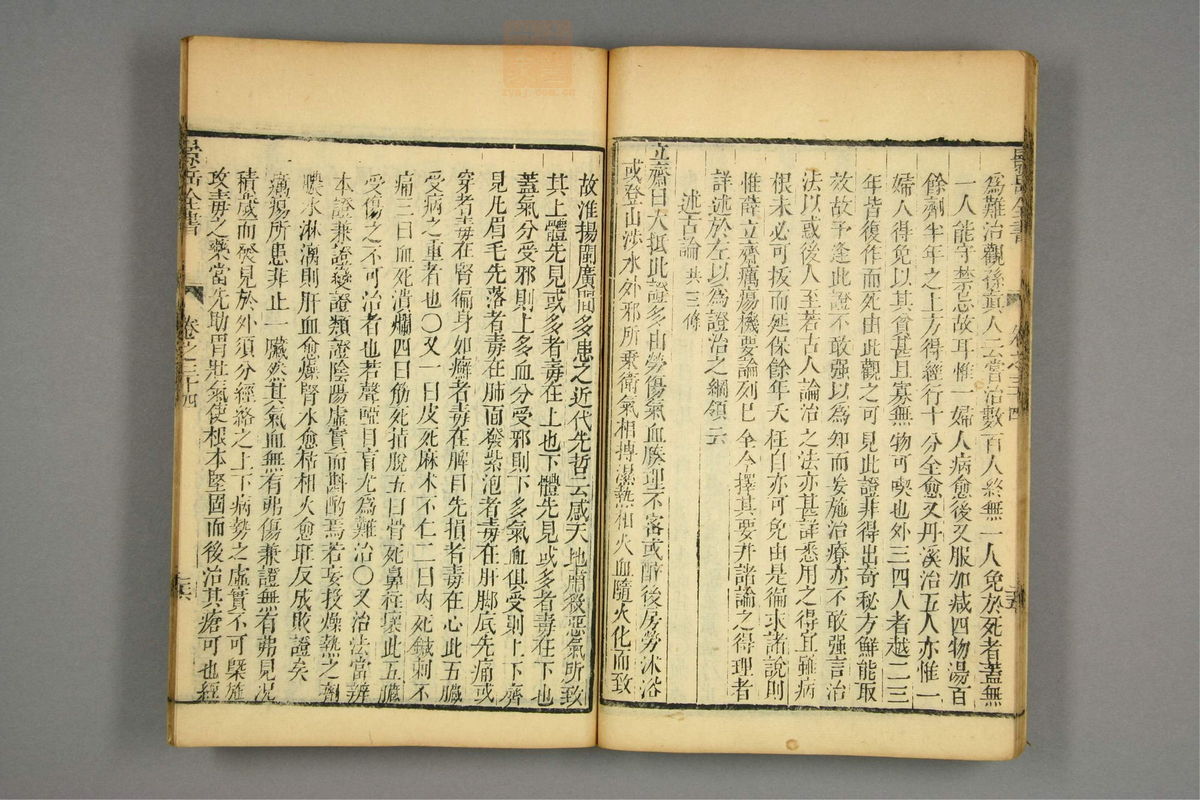 景岳全書 卷之三十四
為難治觀孫真人云嘗治數百人終無一人免於死者蓋無
一人能守禁忌故耳惟一婦人病愈後又服加減四物湯百
餘劑半年之上方得經行十分全愈又丹溪治五人亦惟一
婦人得免以其貧甚且寡無物可喫也外三四人者越二三
年皆復作而死由此觀之可見此證非得出奇秘方鮮能取
效故予逢此證不敢强以為知而妄施治療亦不敢强言治
法以或後人至若古人論治之法亦甚詳悉用之得宜雖病
根未必可拔而延保餘年夭枉自亦可免由是徧求諸說則
惟薛立齋癘瘍機要論列已全今擇其要并諸論之得理者
詳述於左以為證治之綱領云
述古論 共三條
立齋曰大抵此證多由勞傷氣血腠理不密或醉後房勞沐浴
或登山涉水外邪所乘衛氣相搏濕熱相火血隨火化而致
故淮揚閩廣間多患之近代先哲云感天地肅殺惡氣所致
其上體先見或多者毒在上也下體先見或多者毒在下也
蓋氣分受邪則上多血分受邪則下多氣血俱受則上下齊
見凡眉毛先落者毒在肺面發紫泡者毒在肝脚底先痛或
穿者毒在腎徧身如癬者毒在脾目先損者毒在心此五臟
受病之重者也〇又一曰皮死麻木不仁二曰肉死鍼刺不
痛三曰血死潰爛四曰筋死指脫五曰骨死鼻柱壞此五臟
受傷之不可治者也若聲啞目盲尤為難治〇又治法當辨
本證兼證變證類證陰陽虛實而斟酌焉若妄投燥熱之劑
膿水淋漓則肝血愈燥腎水愈枯相火愈旺反成敗證矣
癘瘍所患非止一臟然其氣血無有弗傷兼證無有弗見况
積歲而發見於外須分經絡之上下病勢之虛實不可槩施
攻毒之藥當先助胃壯氣使根本堅固而後治其瘡可也經
景岳全書 卷之三十四